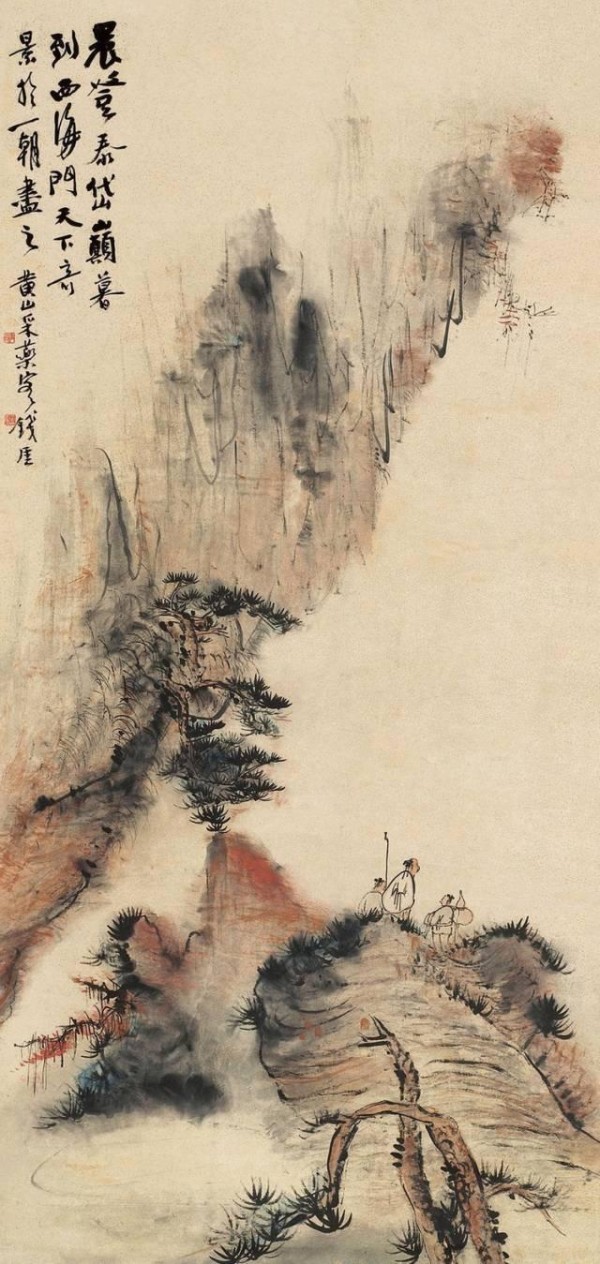 晨登泰岱巔暮
到西海門天下奇
景於一朝盡之 黃山采藥客 錢厓